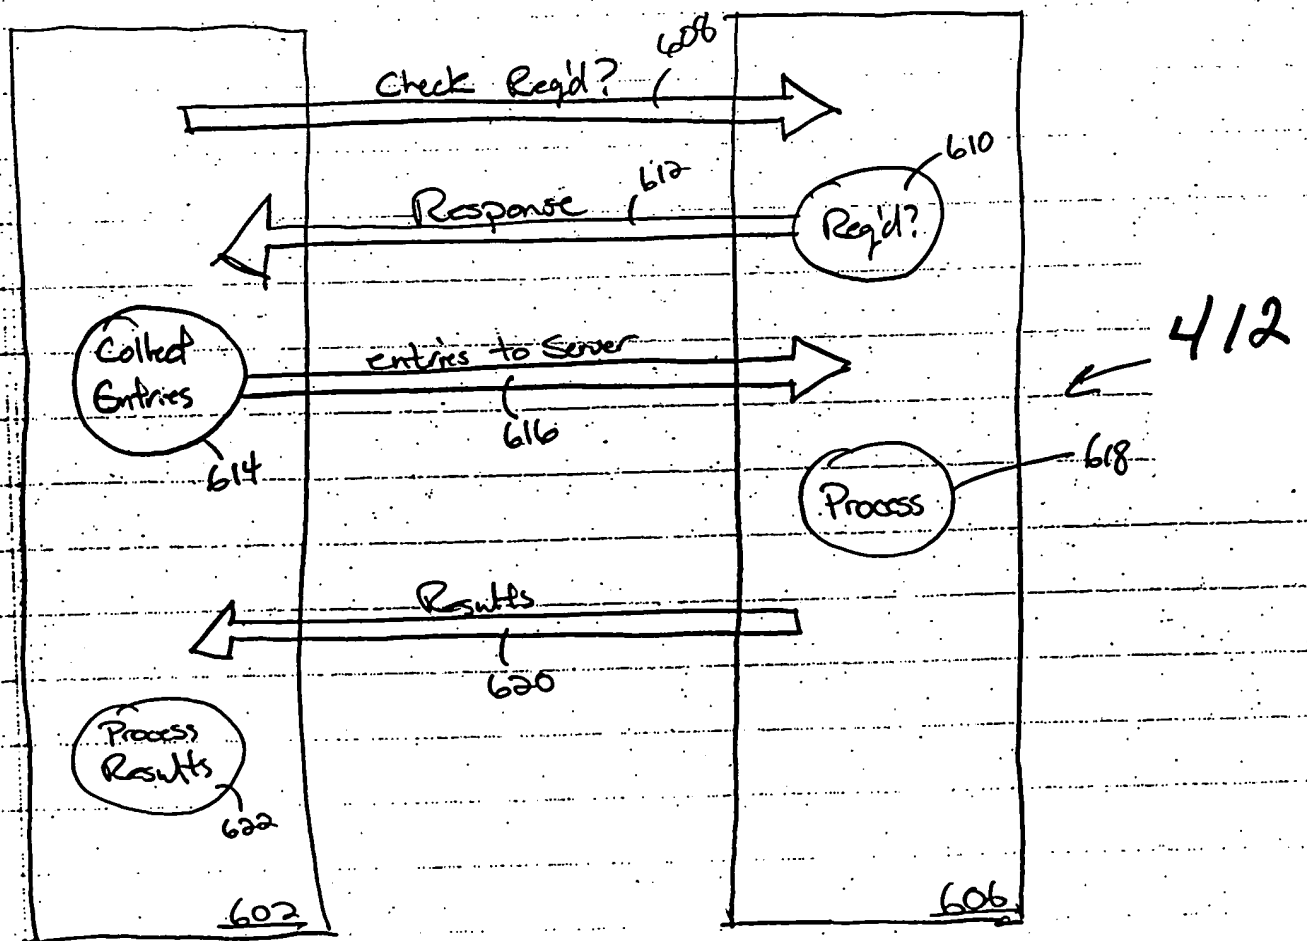 608
Check Req'd?
610
612
Response
Req'd?
412
Collect
Entries
entries to Server
616
614
618
Process
Results
620
Process
Results
622
602
606